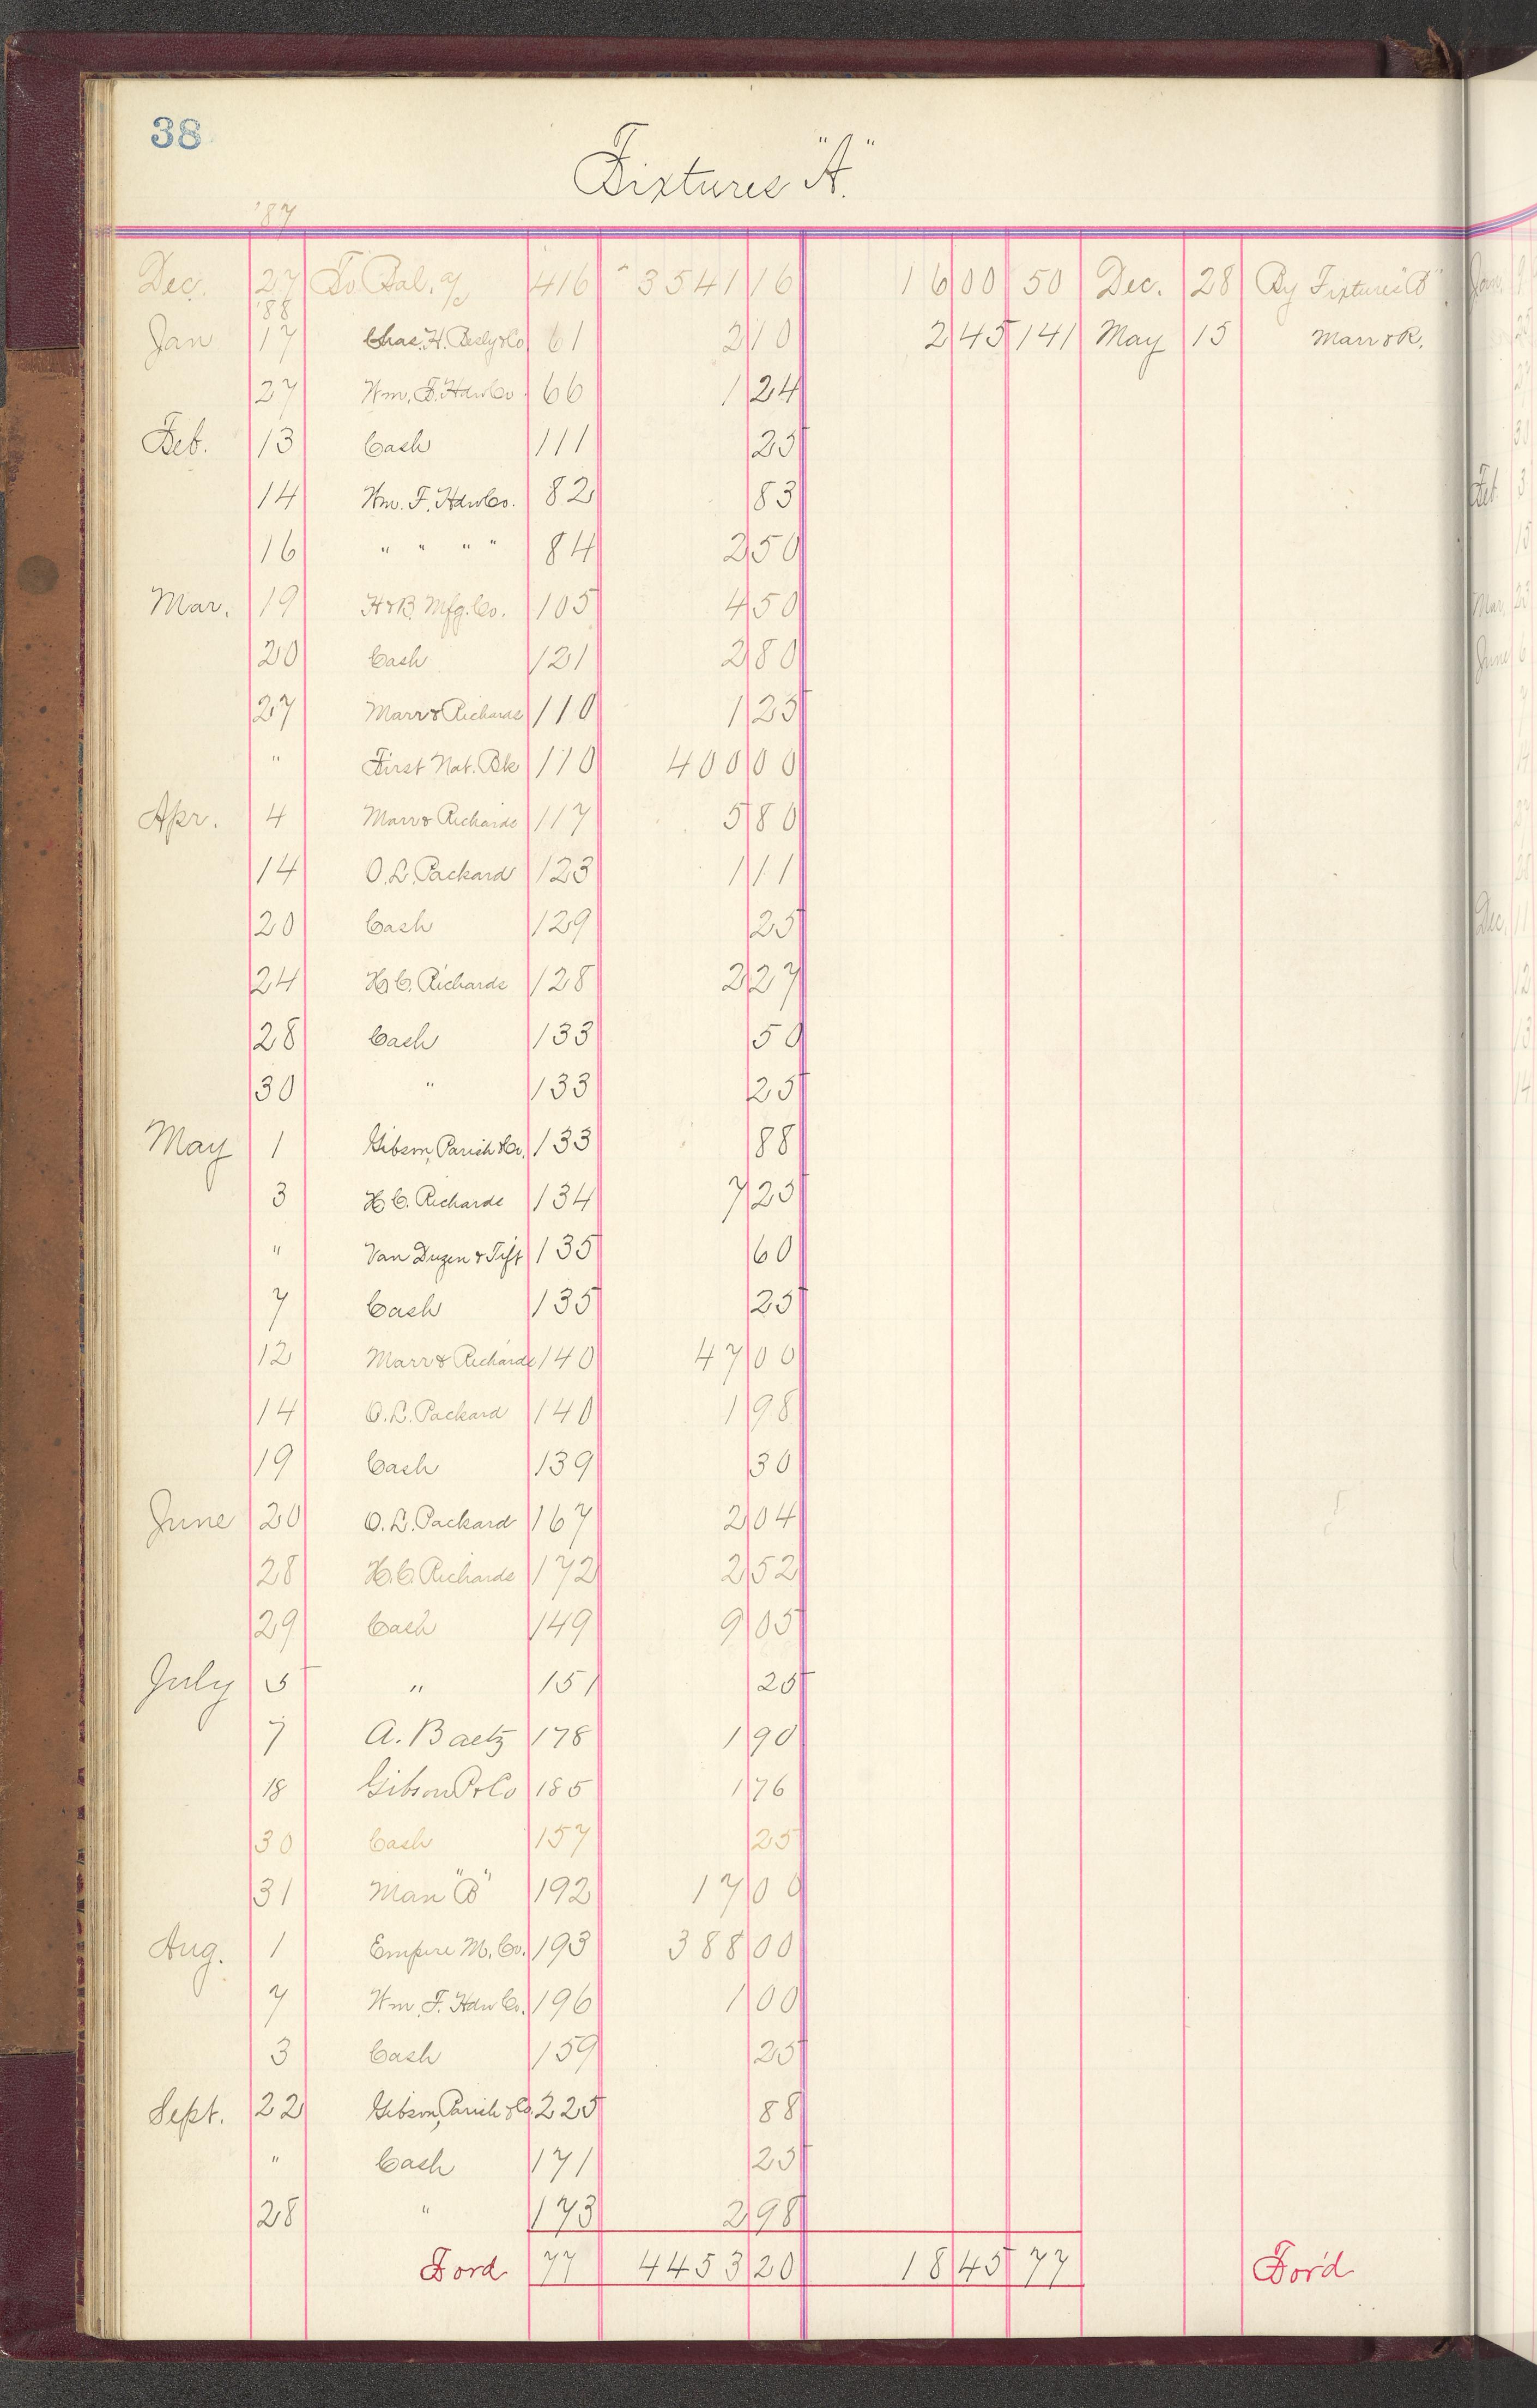 38
Fixtures "A".
'87
Dec. 27 To Bal. a/c 416 3541 16 16 00 50 Dec. 28 By Fixtures "B"
'88
Jan 17 Chas. H. Besly & Co 61 2 10 2 45 141 May 15 Marr & R.
27 Wm. F. Hdw Co. 66 1 24
Feb. 13 Cash 111 25
14 Wm. F. Hdw Co. 82 83
16 " " " " 84 2 50
Mar. 19 H & B Mfg. Co. 105 4 50
20 Cash 121 2 80
27 Marr & Richards 110 1 25
" First Nat. Bk 110 400 00
Apr. 4 Marr & Richards 117 5 80
14 O. L. Packard 123 1 11
20 Cash 129 25
24 H C. Richards 128 2 27
28 Cash 133 50
30 " 133 25
May 1 Gibson, Parish & Co. 133 88
3 H C. Richards 134 7 25
" Van Duzen & Tift 135 60
7 Cash 135 25
12 Marr & Richards 140 47 00
14 O. L. Packard 140 1 98
19 Cash 139 30
June 20 O. L. Packard 167 2 04
28 H. C. Richards 172 2 52
29 Cash 149 9 05
July 5 " 151 25
7 A. Baetz 178 1 90
18 Gibson P & Co 185 1 76
30 Cash 157 25
31 Man "B" 192 17 00
Aug. 1 Empire M. Co. 193 388 00
7 Wm. F. Hdw Co. 196 1 00
3 Cash 159 25
Sept. 22 Gibson, Parish & Co. 225 88
" Cash 171 25
28 " 173 2 98
Ford 77 4453 20 18 45 77 For'd